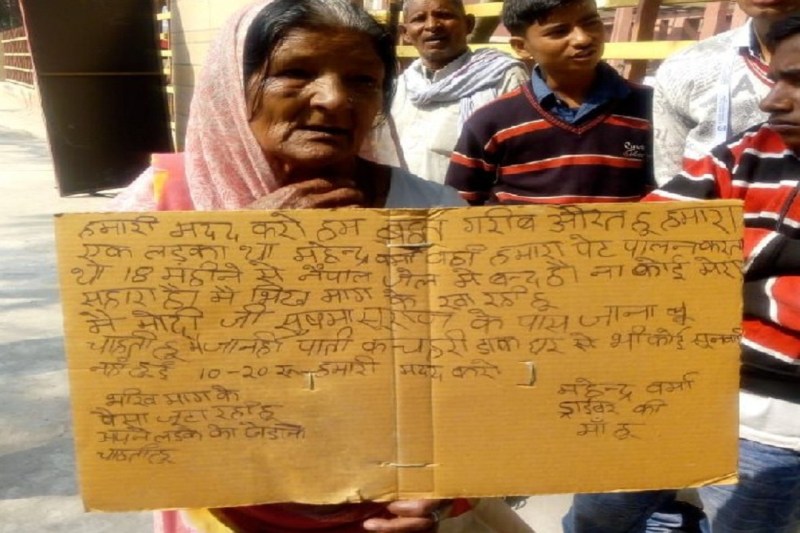 हमारी मदद करो हम बहुत गरीब औरत हू हमारा
एक लड़का था महेन्द्र वर्मा वही हमारा पेट पालन करता
था 18 महीने से नेपाल जेल मे बन्द है। ना कोई मेरा
सहारा है। मै भिख माग के खा रही हू
मै मोदी जी सुषमा स्वराज के पास जाना
चाहती हू मै जा नही पाती कचहरी डाक घर से भी कोई सुनवाई
नही हुई 10-20 रु- हमारी मदद करो
भीख माग के
पैसा जुटा रही हू
अपने लड़के को छोडाने
चाहती हू
महेन्द्र वर्मा
ड्राईवर की
माँ हू